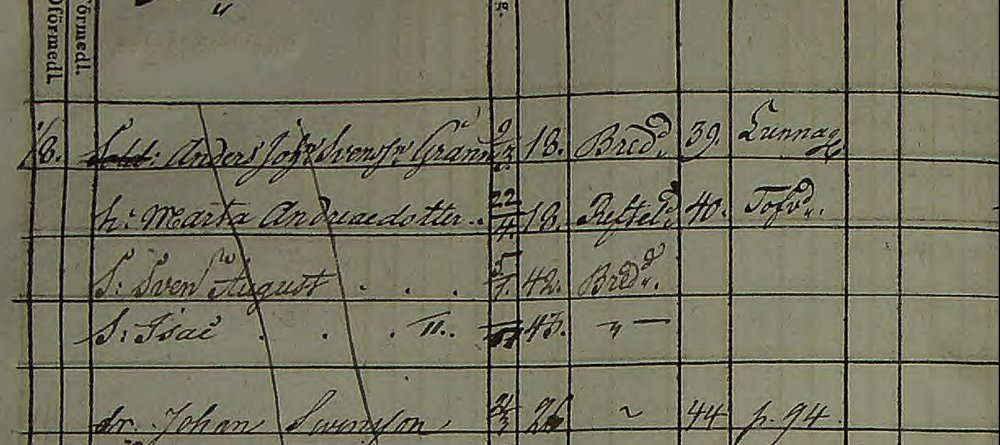 Oförmedl.
Förmedl.
18. Sold: Anders Joh: Svens: Grann 9 18. Bred. 39. Lunnag
h: Marta Andreaedotter.. 22/4. 18. Reftel. 40. Tofrd.
S: Sven August . . . 5/7. 42. Bred.
S: Isac . . . 43. " —
dr. Johan Svenson 26 ~ 44 p. 94